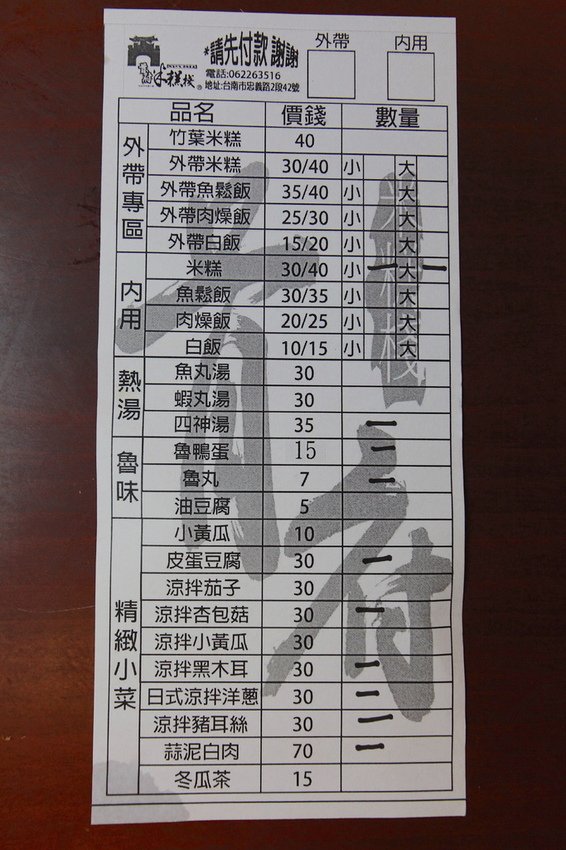 *請先付款 謝謝
外帶
內用
米糕棧
電話:062263516
地址:台南市忠義路2段42號
品名 價錢 數量
外帶專區
竹葉米糕 40
外帶米糕 30/40 小 大
外帶魚鬆飯 35/40 小 大
外帶肉燥飯 25/30 小 大
外帶白飯 15/20 小 大
內用
米糕 30/40 小 一 大 一
魚鬆飯 30/35 小 大
肉燥飯 20/25 小 大
白飯 10/15 小 大
熱湯
魚丸湯 30
蝦丸湯 30
四神湯 35 一
魯味
魯鴨蛋 15 一
魯丸 7 一
油豆腐 5
精緻小菜
小黃瓜 10
皮蛋豆腐 30 一
涼拌茄子 30
涼拌杏包菇 30 一
涼拌小黃瓜 30
涼拌黑木耳 30 一
日式涼拌洋蔥 30 一
涼拌豬耳絲 30 一
蒜泥白肉 70 一
冬瓜茶 15